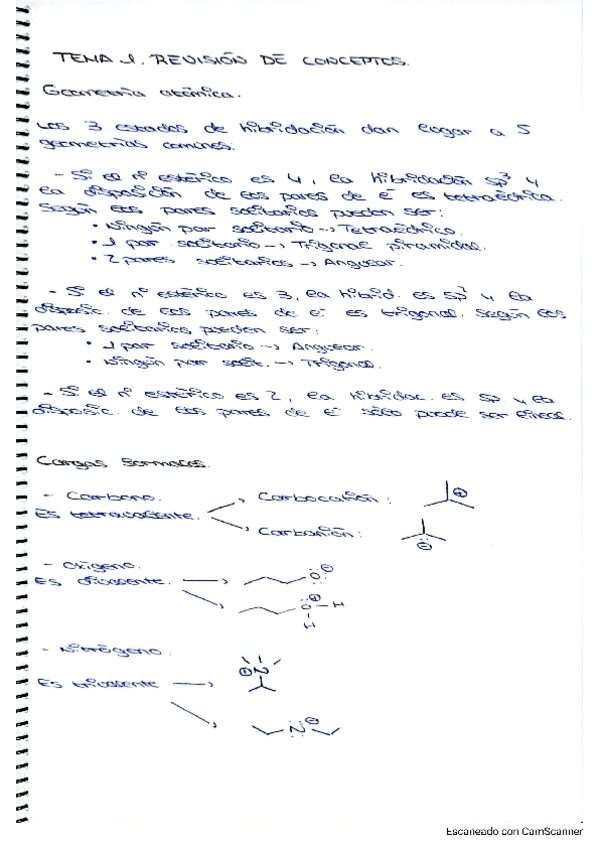 TEMA 1. REVISIÓN DE CONCEPTOS.
Geometría atómica.
Los 3 estados de hibridación dan lugar a 5
geometrías comunes:
- Si el nº estérico es 4, la hibridación sp³ y
la disposición de los pares de e⁻ es tetraédrica.
Según los pares solitarios pueden ser:
• Ningún par solitario → Tetraédrico.
• 1 par solitario → Trigonal piramidal.
• 2 pares solitarios → Angular.
- Si el nº estérico es 3, la hibrid. es sp² y la
disposic. de los pares de e⁻ es trigonal. Según los
pares solitarios pueden ser:
• 1 par solitario → Angular.
• Ningún par solit. → Trigonal.
- Si el nº estérico es 2, la hibridac. es sp y la
disposic. de los pares de e⁻ sólo puede ser lineal.
Cargas formales.
- Carbono.
Es tetravalente.
Carbocatión: ⊕
Carbanión: ⊖
- Oxígeno.
Es divalente. → O ⊖
⊕ O - H
H
- Nitrógeno.
Es trivalente → ⊕ N
N ⊖
Escaneado con CamScanner